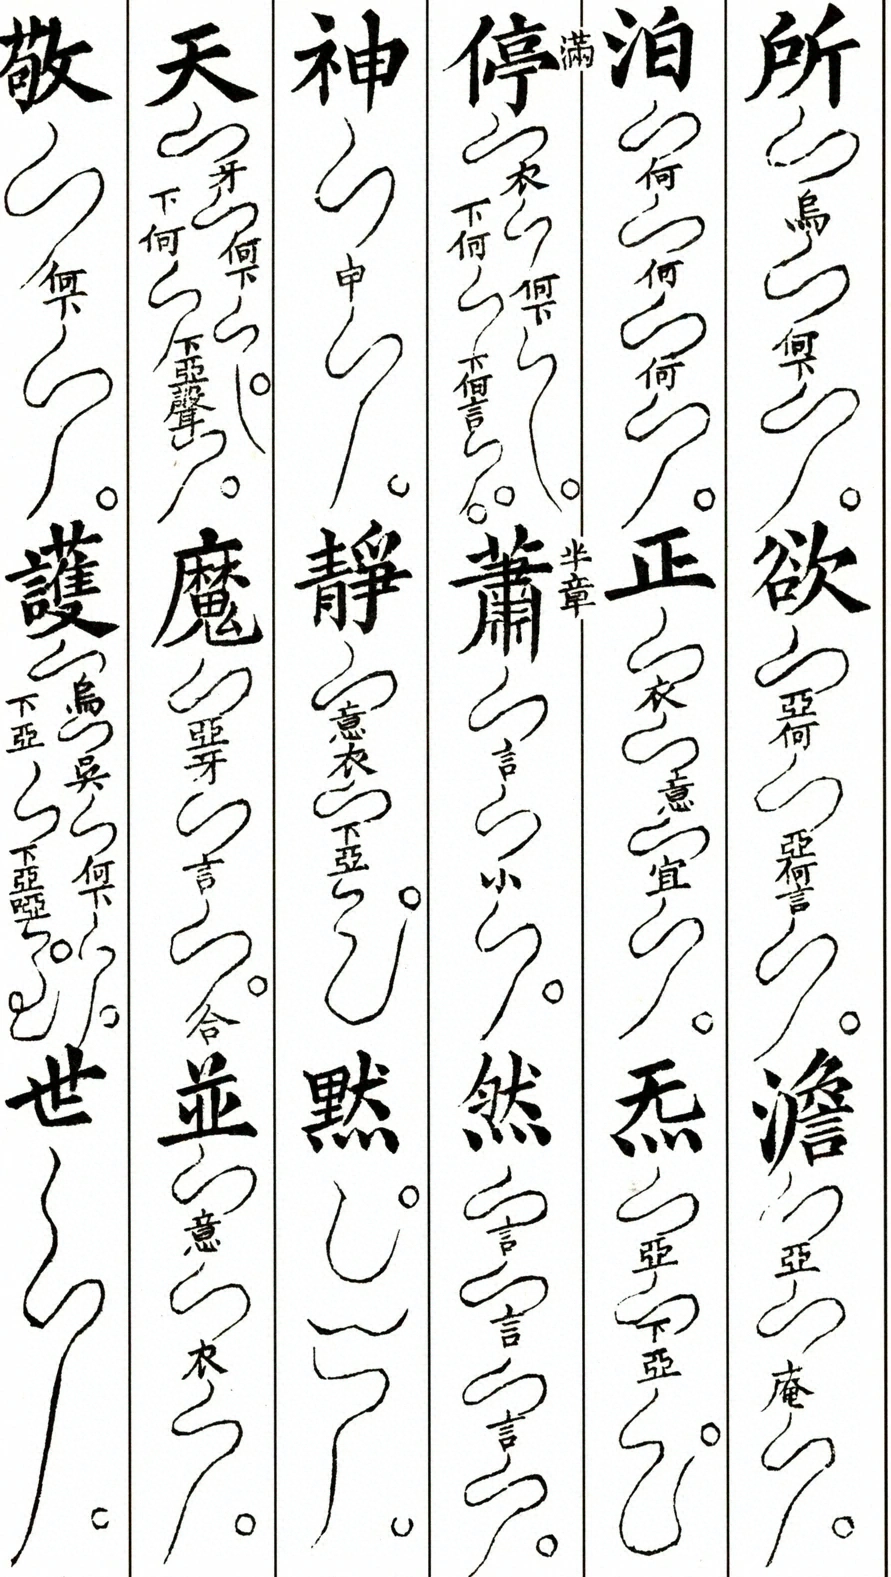 所烏何下欲亞何亞何言澹亞庵
泊何何何正衣意宜炁亞下亞
滿半章
停衣何下下何下何言蕭言小然言言言
神申靜意衣下亞默
天牙何下下何下亞聲魔亞牙言合並意衣
敬何下護烏吳何下下亞下亞啞世